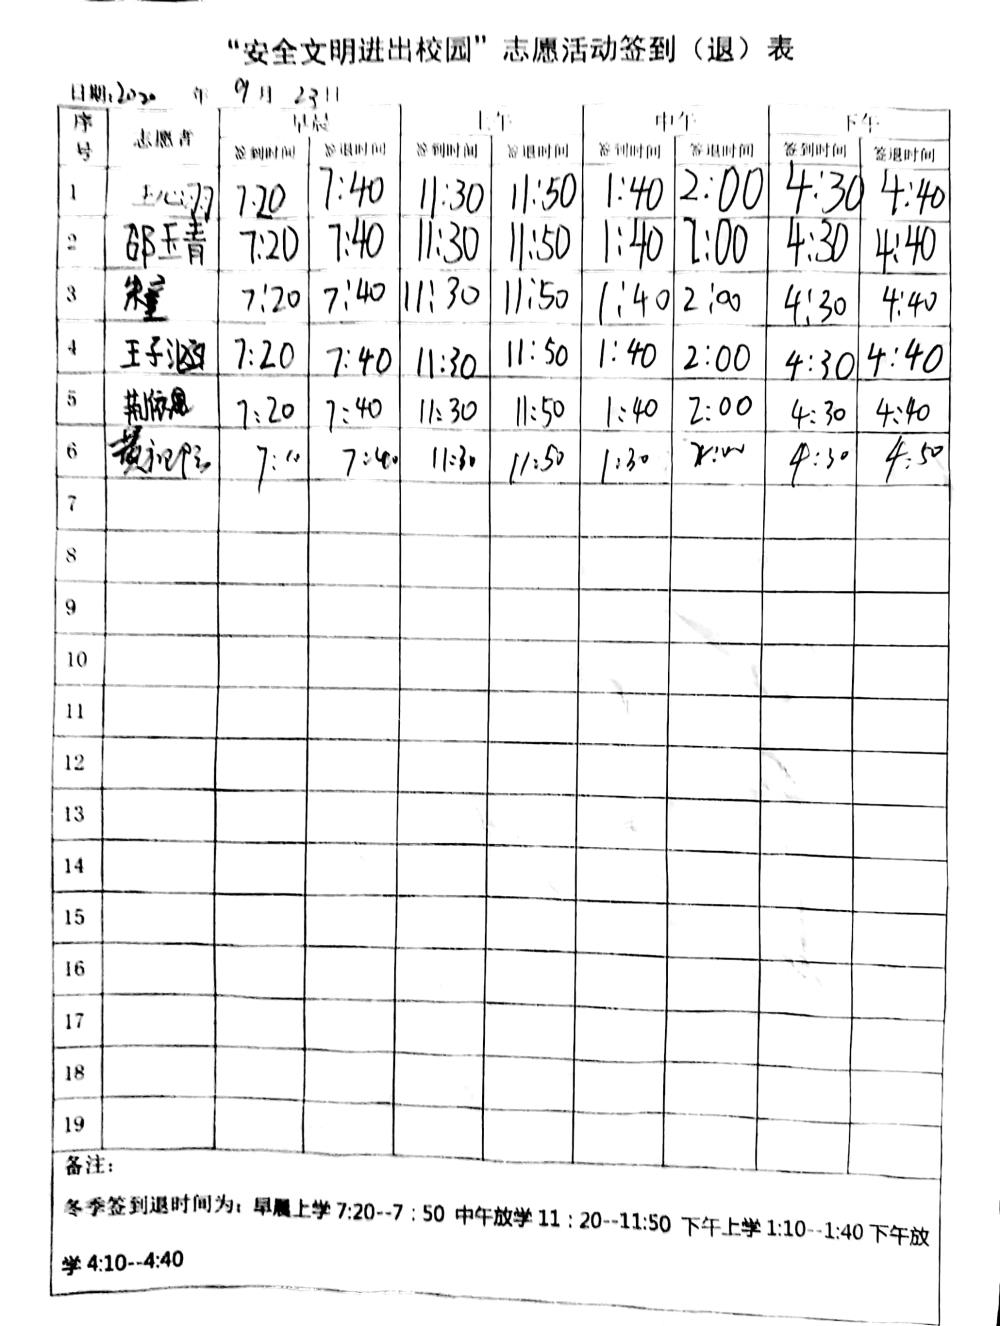 “安全文明进出校园”志愿活动签到（退）表
日期:2020 年 9月 23日
序号 志愿者 早晨 上午 中午 下午
签到时间 签退时间 签到时间 签退时间 签到时间 签退时间 签到时间 签退时间
1 王心羽 7:20 7:40 11:30 11:50 1:40 2:00 4:30 4:40
2 邵玉青 7:20 7:40 11:30 11:50 1:40 2:00 4:30 4:40
3 朱 7:20 7:40 11:30 11:50 1:40 2:00 4:30 4:40
4 王子涵 7:20 7:40 11:30 11:50 1:40 2:00 4:30 4:40
5 荆 7:20 7:40 11:30 11:50 1:40 2:00 4:30 4:40
6 黄 7: 7:40 11:30 11:50 1:30 4:30 4:50
7
8
9
10
11
12
13
14
15
16
17
18
19
备注:
冬季签到退时间为: 早晨上学 7:20--7：50 中午放学 11：20--11:50 下午上学 1:10--1:40 下午放
学 4:10--4:40